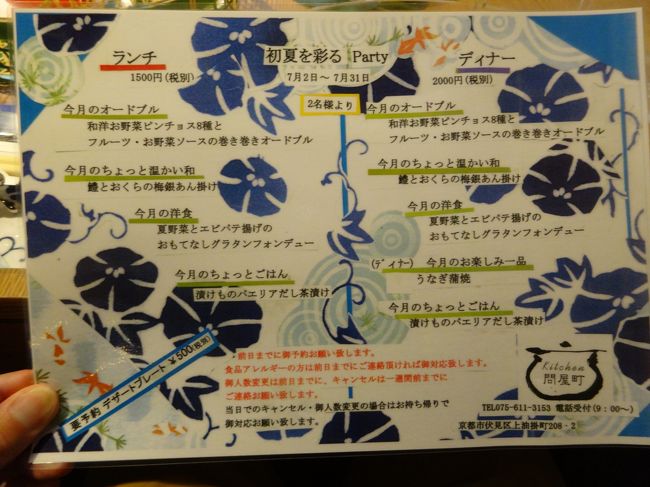 初夏を彩る Party
7月2日～7月31日
2名様より
ランチ
1500円(税別)
今月のオードブル
和洋お野菜ピンチョス8種と
フルーツ・お野菜ソースの巻き巻きオードブル
今月のちょっと温かい和
鱧とおくらの梅銀あん掛け
今月の洋食
夏野菜とエビパテ揚げの
おもてなしグラタンフォンデュー
今月のちょっとごはん
漬けものパエリアだし茶漬け
要予約 デザートプレート ¥500(税別)
ディナー
2000円(税別)
今月のオードブル
和洋お野菜ピンチョス8種と
フルーツ・お野菜ソースの巻き巻きオードブル
今月のちょっと温かい和
鱧とおくらの梅銀あん掛け
今月の洋食
夏野菜とエビパテ揚げの
おもてなしグラタンフォンデュー
(ディナー) 今月のお楽しみ一品
うなぎ蒲焼
今月のちょっとごはん
漬けものパエリアだし茶漬け
・前日までに御予約お願い致します。
食品アレルギーの方は前日までにご連絡頂ければ御対応致します。
御人数変更は前日までに、キャンセルは一週間前までに
ご連絡お願い致します。
当日でのキャンセル・御人数変更の場合はお持ち帰りで
御対応お願い致します。
Kitchen
問屋町
TEL075-611-3153 電話受付(9：00～)
京都市伏見区上油掛町208‐2